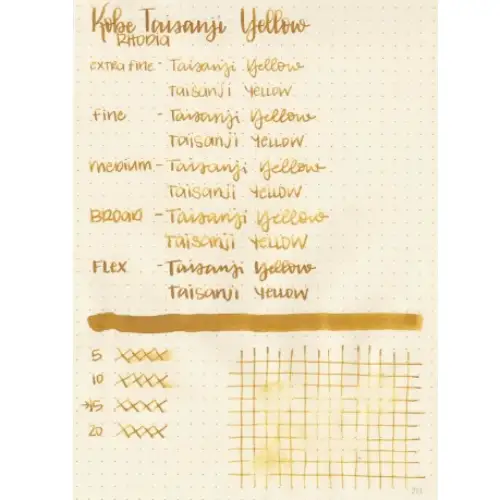 Kobe Taisanji Yellow
RHODIA
extra fine - Taisanji Yellow
Taisanji Yellow
fine - Taisanji Yellow
Taisanji Yellow
medium - Taisanji Yellow
Taisanji Yellow
Broad - Taisanji Yellow
Taisanji Yellow
Flex - Taisanji Yellow
Taisanji Yellow
5 XXXX
10 XXXX
→15 XXXX
20 XXXX